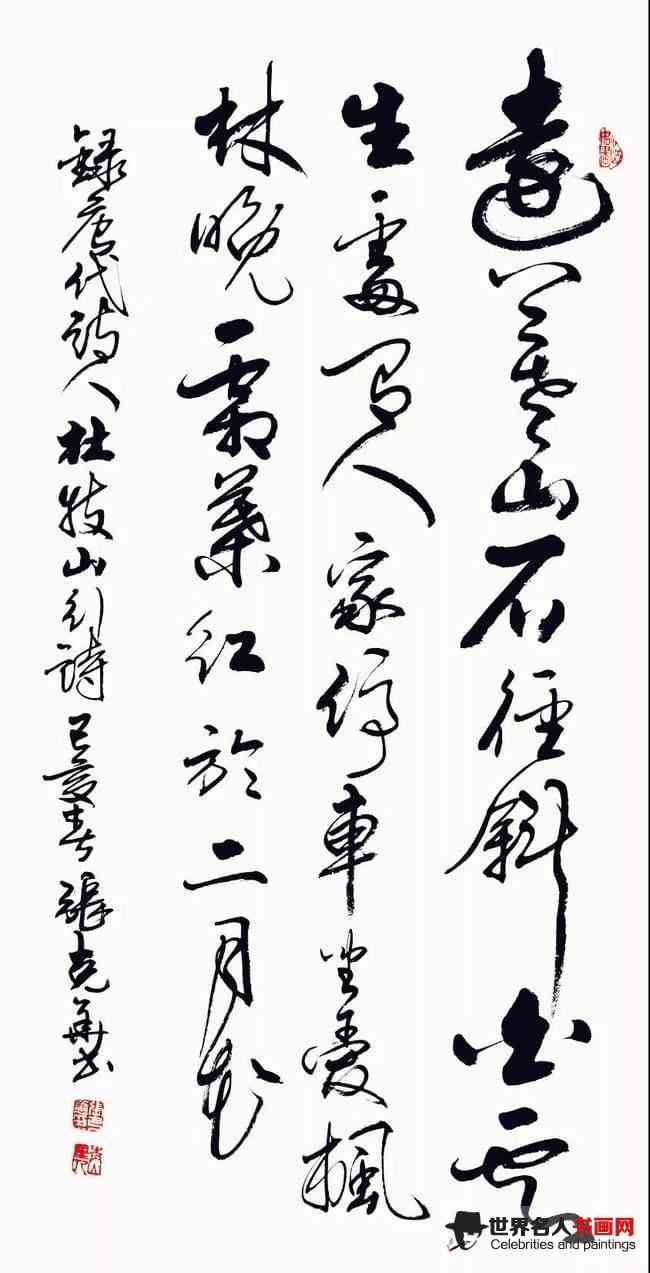 遠上寒山石徑斜白雲
生處有人家停車坐愛楓
林晚霜葉紅於二月花
錄唐代詩人杜牧山行詩己亥春張克書
世界名人书画网
Celebrities and paintings